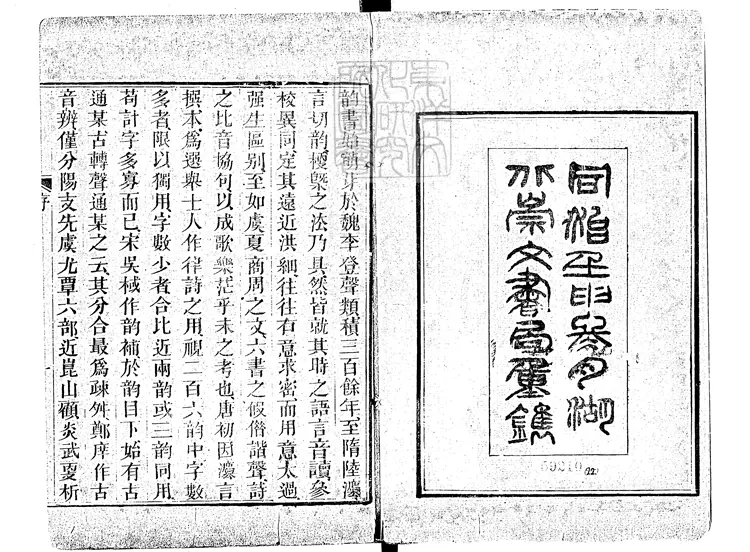 同治壬申參月湖
北崇文書局重鐫
東洋文
化研究
韵書始萌芽於魏李登聲類積三百餘年至隋陸灋
言切韵梗槩之法乃具然皆就其時之語言音讀參
校異同定其遠近洪細往往有意求密而用意太過
强生區别至如虞夏商周之文六書之假借諧聲詩
之比音協句以成歌樂茫乎未之考也唐初因灋言
撰本爲選舉士人作律詩之用視二百六韵中字數
多者限以獨用字數少者合比近兩韵或三韵同用
苟計字多寡而已宋吳棫作韵補於韵目下始有古
通某古轉聲通某之云其分合最爲疎舛鄭庠作古
音辨僅分陽支先虞尤覃六部近崑山顧炎武更析
序
一